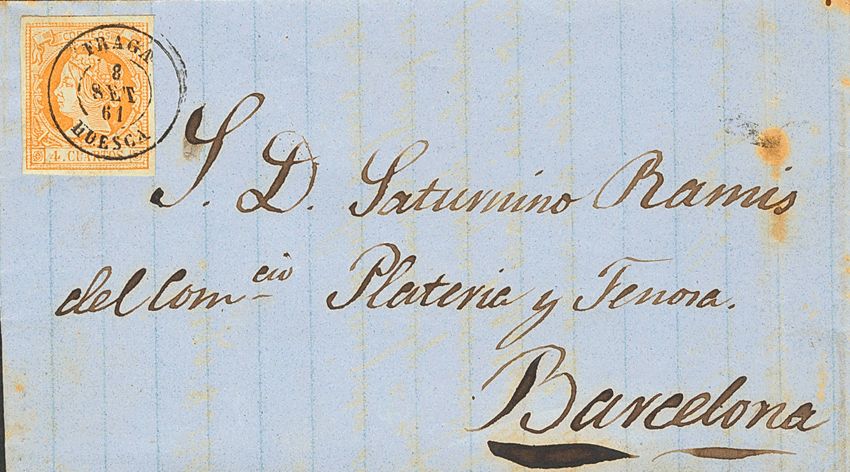 FRAGA
8
SET
61
HUESCA
4. CUARTOS
S. D. Saturnino Ramis
del Com.cio Plateria y Fenosa.
Barcelona